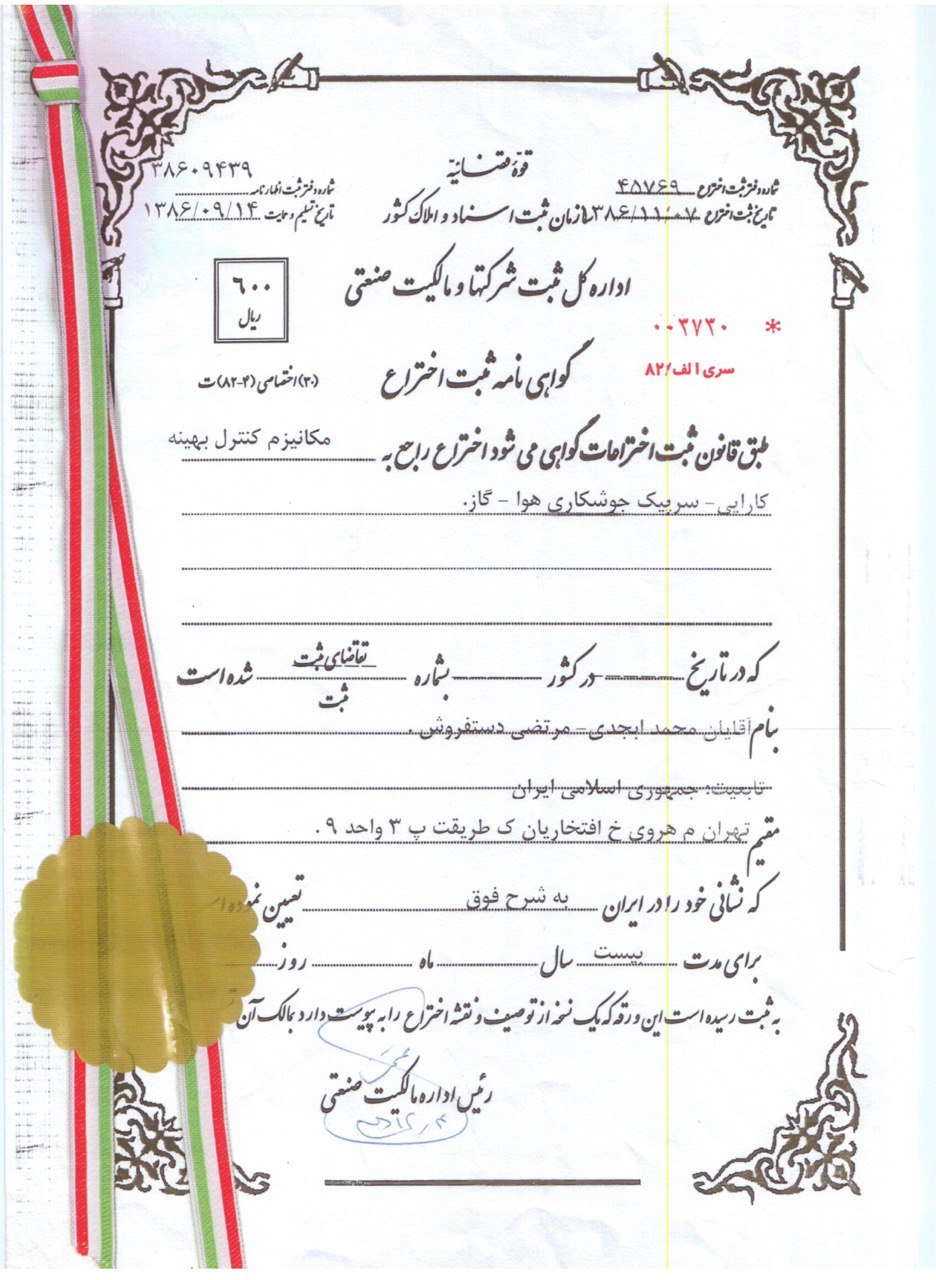 قوهٔ قضائیه
شماره دفتر ثبت اختراع ۴۵۷۶۹
تاریخ ثبت اختراع ۱۳۸۶/۱۱/۰۷
سازمان ثبت اسناد و املاک کشور
شماره دفتر ثبت اظهارنامه ۳۸۶۰۹۴۳۹
تاریخ تسلیم و حمایت ۱۳۸۶/۰۹/۱۴
اداره کل ثبت شرکتها و مالکیت صنعتی
۶۰۰
ریال
* ۰۰۳۷۳۰
سری الف/۸۲
گواهی نامه ثبت اختراع
(۳۰) اختصاصی (۴-۸۲) ت
طبق قانون ثبت اختراعات گواهی می شود اختراع راجع به مکانیزم کنترل بهینه
کارایی- سرپیک جوشکاری هوا - گاز.
که در تاریخ در کشور بشماره تقاضای ثبت شده است
ثبت
بنام آقایان محمد ابجدی- مرتضی دستفروش .
تابعیت: جمهوری اسلامی ایران
مقیم تهران م هروی خ افتخاریان ک طریقت پ ۳ واحد ۹.
که نشانی خود را در ایران به شرح فوق تعیین نموده
برای مدت بیست سال ماه روز
به ثبت رسیده است این ورقه که یک نسخه از توصیف و نقشه اختراع را به پیوست دارد بمالک آن
رئیس اداره مالکیت صنعتی